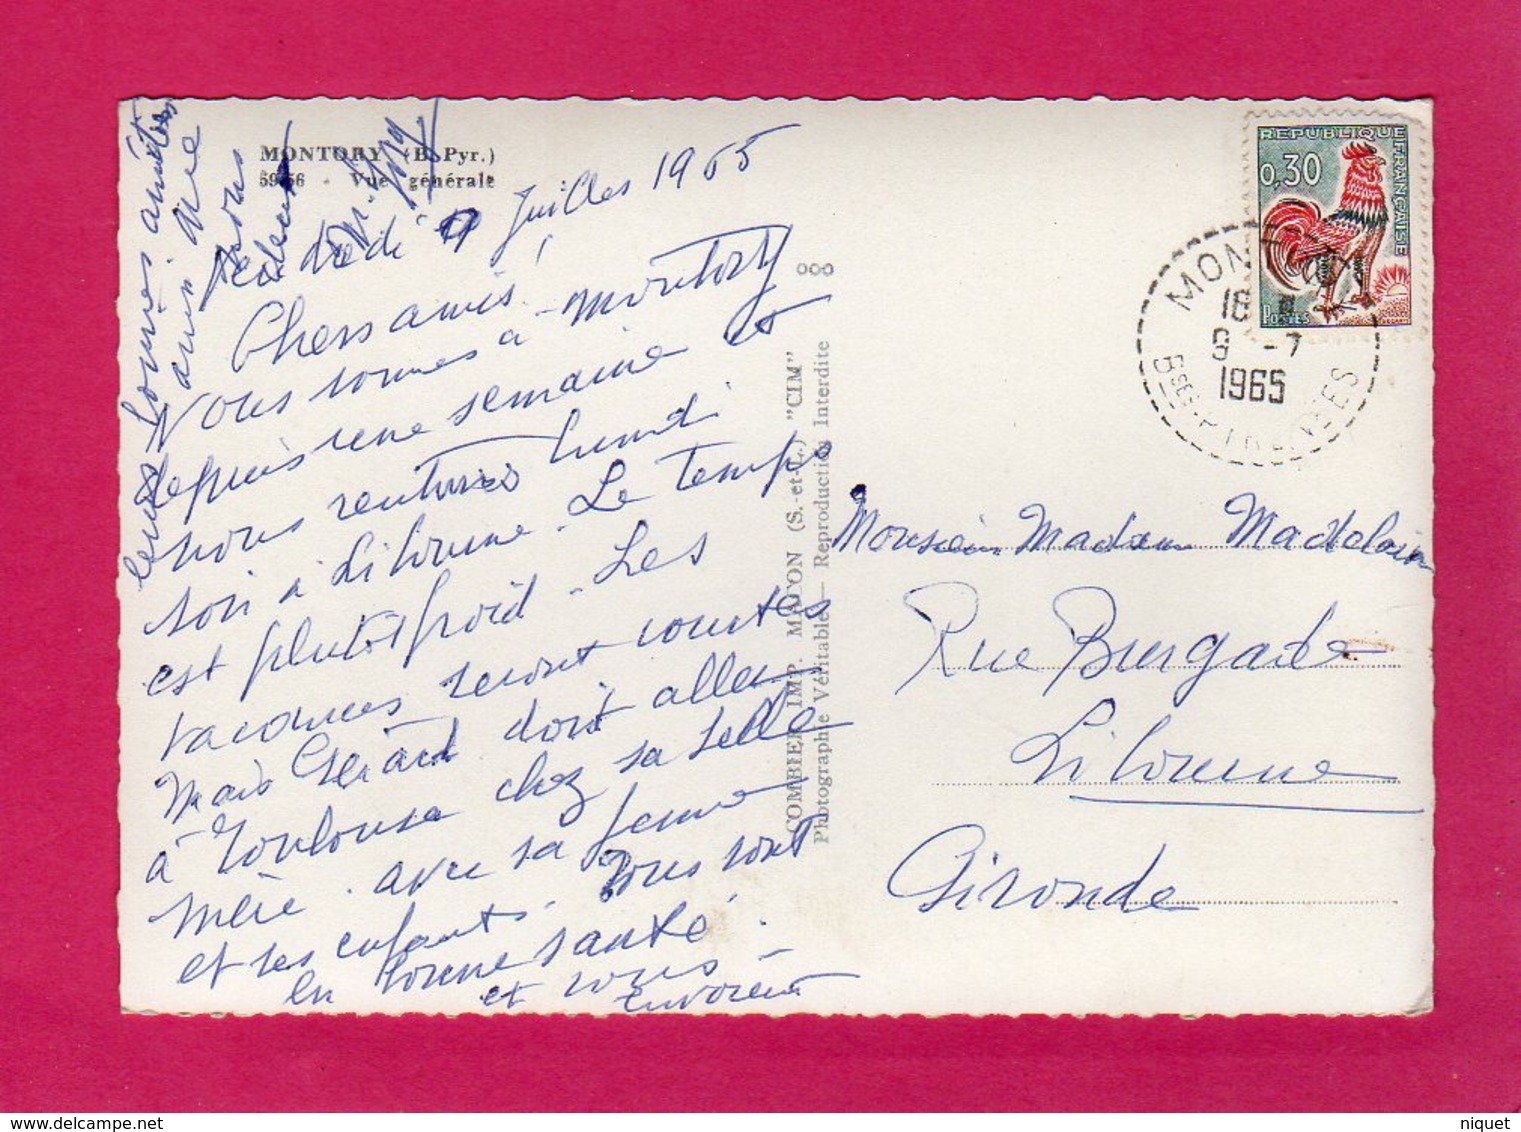 MONTORY (B. Pyr.)
59-56 - Vue générale
Vendredi 9 Juilles 1965
Chers amis!
Nous sommes à Montory
depuis une semaine et
nous rentrons lundi
soir à Libourne. Le Temps
est plutôt froid. Les
vacances seront courtes
mais Gérard doit aller
à Toulouse chez sa belle
mère. avec sa femme
et ses enfants. Tous sont
en bonne santé.
et vous
envoient
leurs bonnes amitiés
COMBIER IMP. MACON (S.-et-L.) "CIM"
Photographie Véritable — Reproduction Interdite
REPUBLIQUE FRANÇAISE
0,30
POSTES
MONTORY
18 H
9 -7
1965
Bses-PYRENEES
Monsieur Madame
Rue Burgade
Libourne
Gironde
niquet